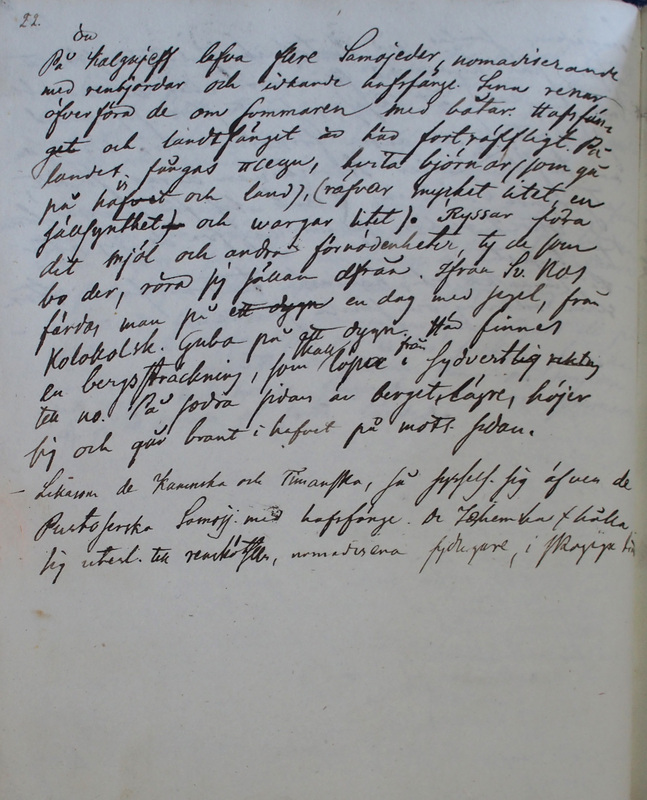 22.
ön
På Kalgujeff lefva flere Samojeder, nomadiserande
med renhjordar och idkande hafsfänge. Sina renar
öfverföra de om sommaren med båtar. Hafsfän-
get och landtfänget är här förträffligt. På
landet fångas песцы, hvita björnar (som gå
på häfvet och land), (räfvar mycket litet, en
sällsynthet) och wargar litet). Ryssar föra
dit mjöl och andra förnödenheter, ty de som
bo der, röra sig sällan derifrån. Ifrån Sv. Nos
färdas man på ett dygn en dag med segel, från
Kolokolsk. Guba på ett dygn. Här finnes
en bergssträckning, som skall löpa från sydvestlig
till no. På södra sidan är berget lägre, höjer
sig och går brant i hafvet på motts. sidan.
– Likasom de Kaninska och Timanska, så sysself. sig äfven de
Pustoserska Samoj. med hafsfänge. De hålla
sig uteslut. till renskötsel, nomadisera sydligare, i skogiga